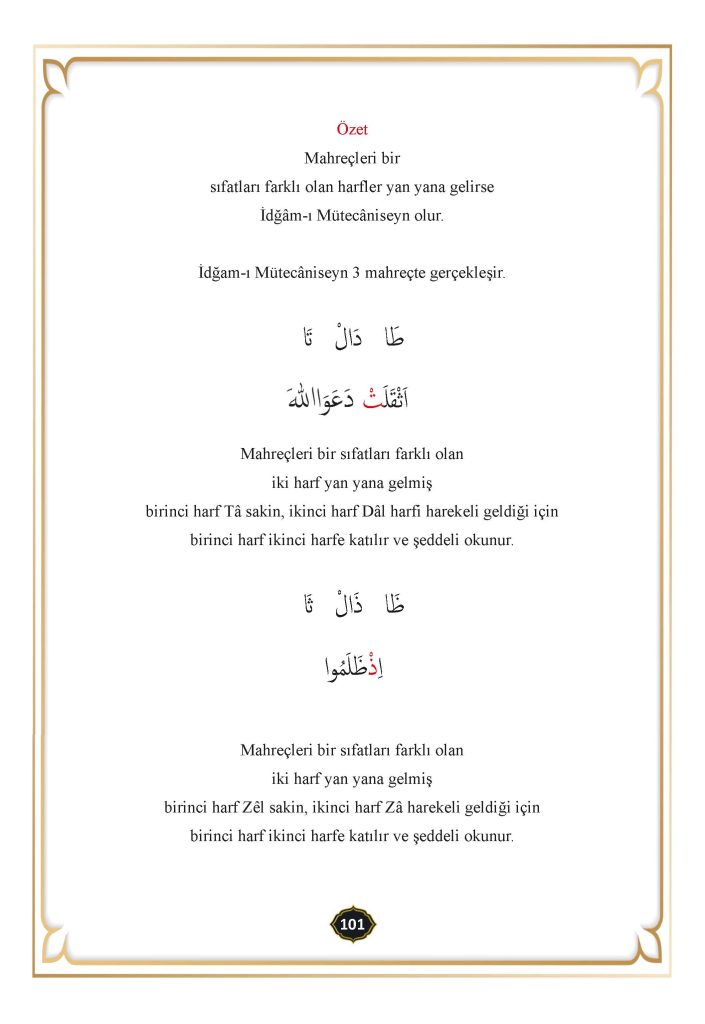 Özet
Mahreçleri bir
sıfatları farklı olan harfler yan yana gelirse
İdğâm-ı Mütecâniseyn olur.
İdğam-ı Mütecâniseyn 3 mahreçte gerçekleşir.
طَا دَالْ تَا
اَثْقَلَتْ دَعَوَا اللهَ
Mahreçleri bir sıfatları farklı olan
iki harf yan yana gelmiş
birinci harf Tâ sakin, ikinci harf Dâl harfi harekeli geldiği için
birinci harf ikinci harfe katılır ve şeddeli okunur.
ظَا ذَالْ ثَا
اِذْظَلَمُوا
Mahreçleri bir sıfatları farklı olan
iki harf yan yana gelmiş
birinci harf Zêl sakin, ikinci harf Zâ harekeli geldiği için
birinci harf ikinci harfe katılır ve şeddeli okunur.
101